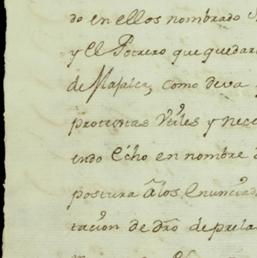 do en ellos nombrado
y el Potrero que quedar
de Masaica, como deva
protextas utiles y nece
endo Echo en nombre
postura â los enunciad
tacion de dro de prela